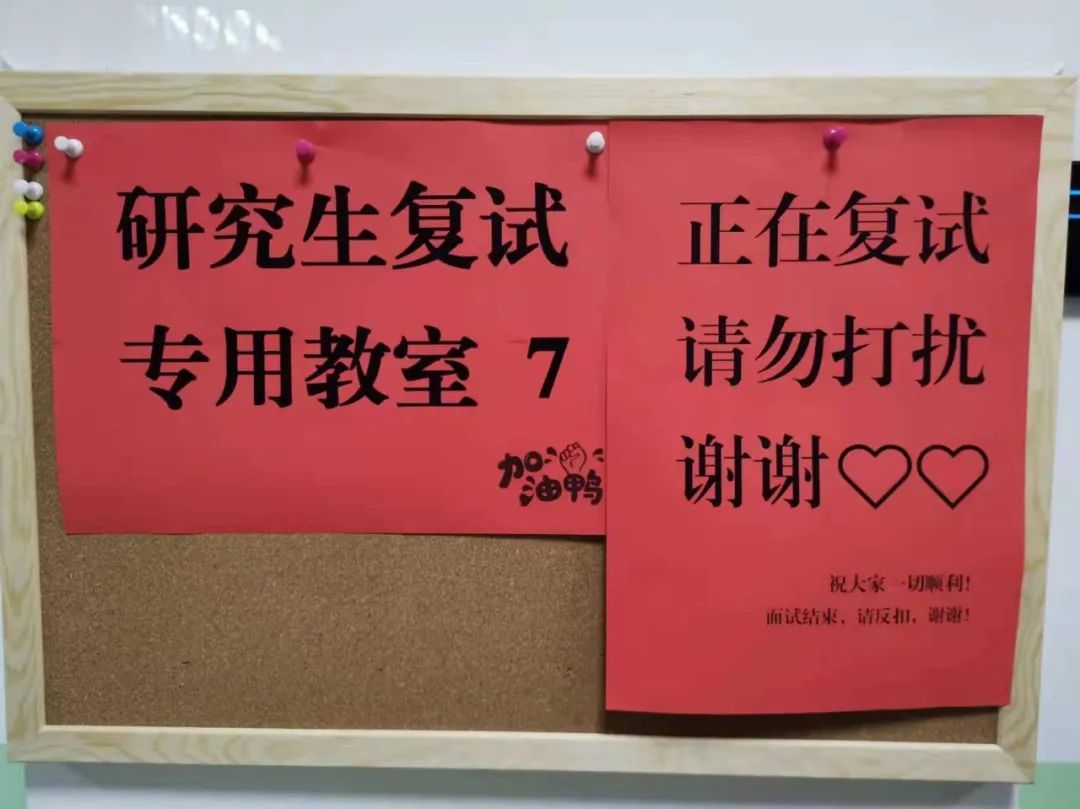 研究生复试
专用教室 7
加油鸭
正在复试
请勿打扰
谢谢♡♡
祝大家一切顺利!
面试结束，请反扣，谢谢!